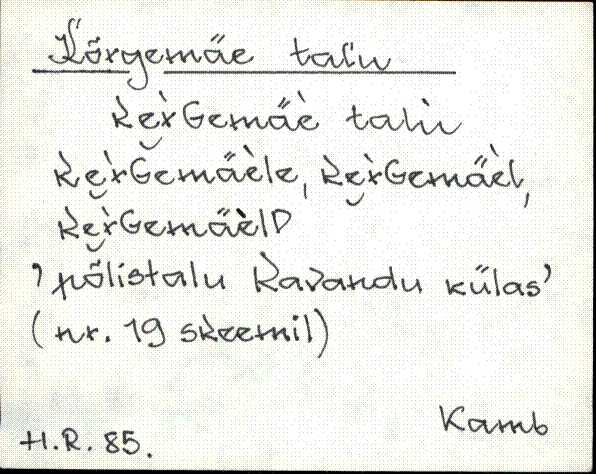 Kõrgemäe talu
ke̮r̀Gemäè talù
ke̮r̀Gemäèle, ke̮r̀Gemäèl,
ke̮r̀GemäèlD
'põlistalu Kavandu külas'
(nr. 19 skeemil)
Kamb
H.R. 85.